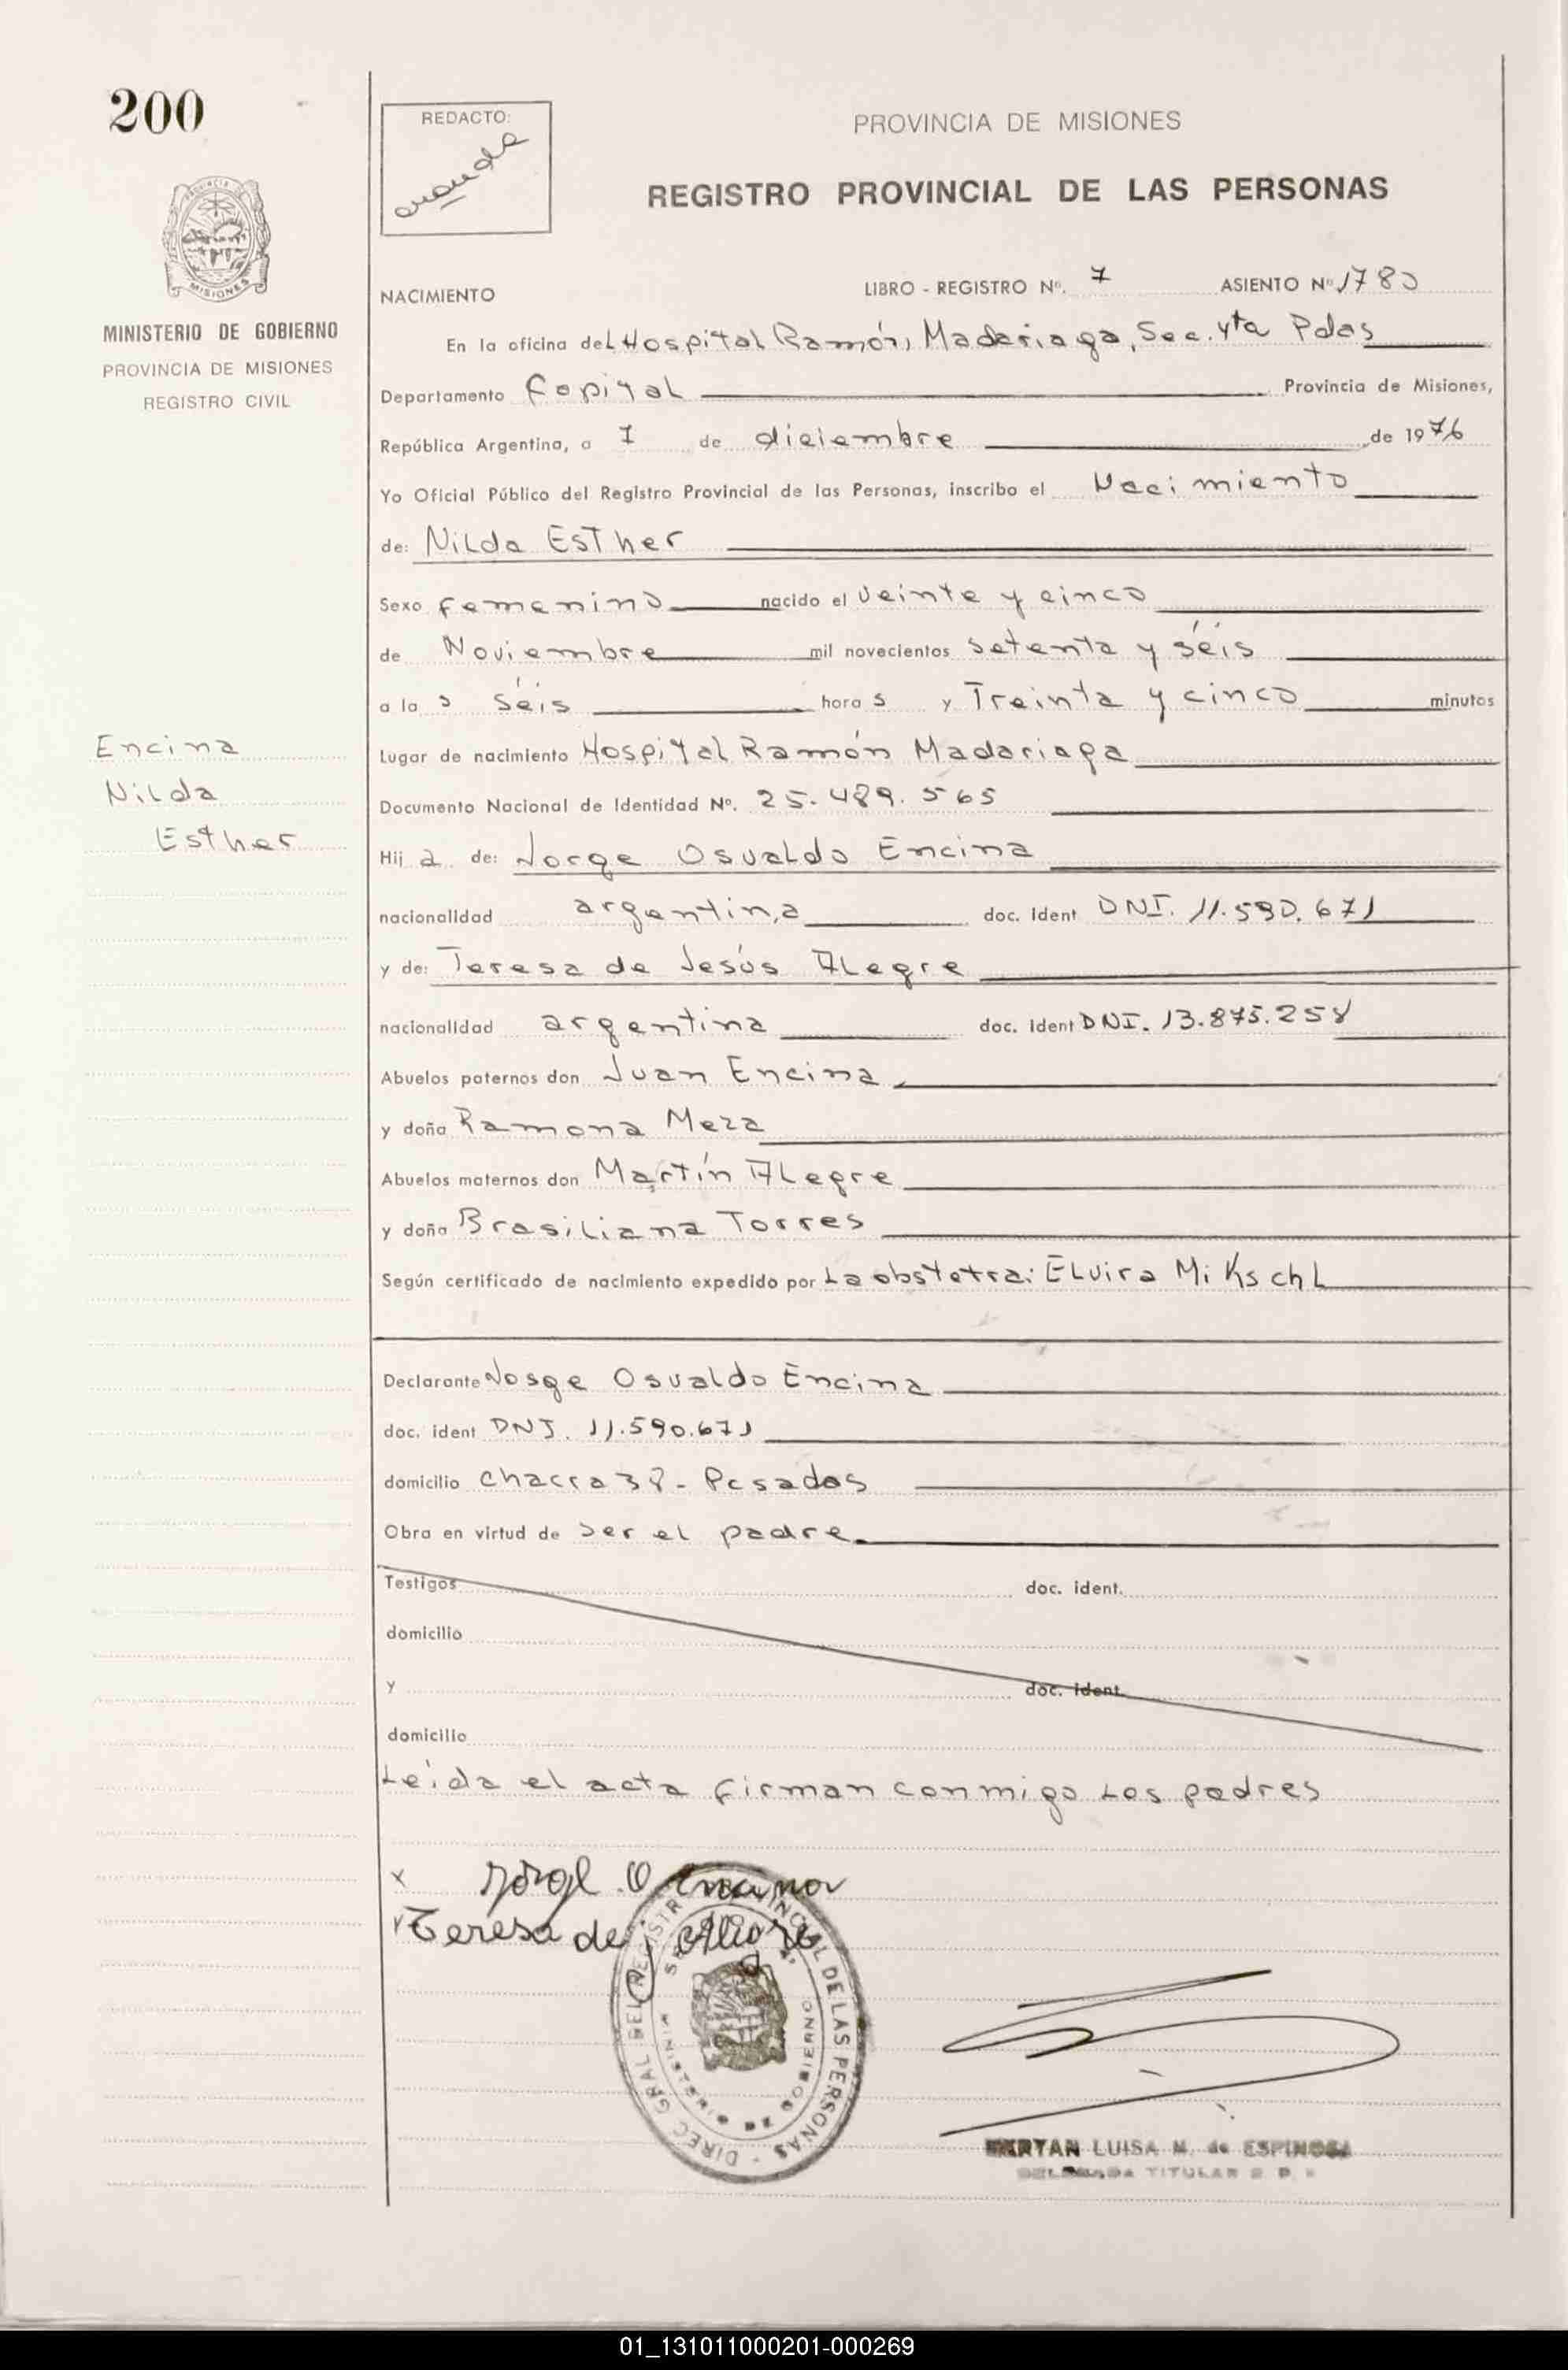 200
REDACTO:
PROVINCIA DE MISIONES
REGISTRO PROVINCIAL DE LAS PERSONAS
PROVINCIA DE MISIONES
MINISTERIO DE GOBIERNO
PROVINCIA DE MISIONES
REGISTRO CIVIL
NACIMIENTO LIBRO - REGISTRO Nº. 7 ASIENTO Nº 1780
En la oficina del Hospital Ramón Madariaga, Sec. 4ta Pdas
Departamento Capital Provincia de Misiones,
República Argentina, a 1 de diciembre de 1976
Yo Oficial Público del Registro Provincial de las Personas, inscribo el Nacimiento
de: Nilda Esther
Sexo femenino nacido el veinte y cinco
de Noviembre mil novecientos setenta y séis
a las séis horas y Treinta y cinco minutos
Encina
Nilda
Esther
Lugar de nacimiento Hospital Ramón Madariaga
Documento Nacional de Identidad Nº. 25.489.565
Hija de: Jorge Osvaldo Encina
nacionalidad argentina doc. Ident DNI. 11.590.671
y de: Teresa de Jesús Alegre
nacionalidad argentina doc. Ident DNI. 13.875.258
Abuelos paternos don Juan Encina
y doña Ramona Meza
Abuelos maternos don Martín Alegre
y doña Brasiliana Torres
Según certificado de nacimiento expedido por La obstetra: Elvira Mikschl
Declarante Jorge Osvaldo Encina
doc. ident DNI. 11.590.671
domicilio chacra 38 - Posadas
Obra en virtud de ser el padre
Testigos doc. ident.
domicilio
y doc. ident.
domicilio
Leída el acta firman conmigo los padres
x Jorge O Encina
x Teresa de J Alegre
DIREC. GRAL DEL REGISTRO PROVINCIAL DE LAS PERSONAS
MINISTERIO DE GOBIERNO
LUISA M. de ESPINOSA
TITULAR
01_131011000201-000269